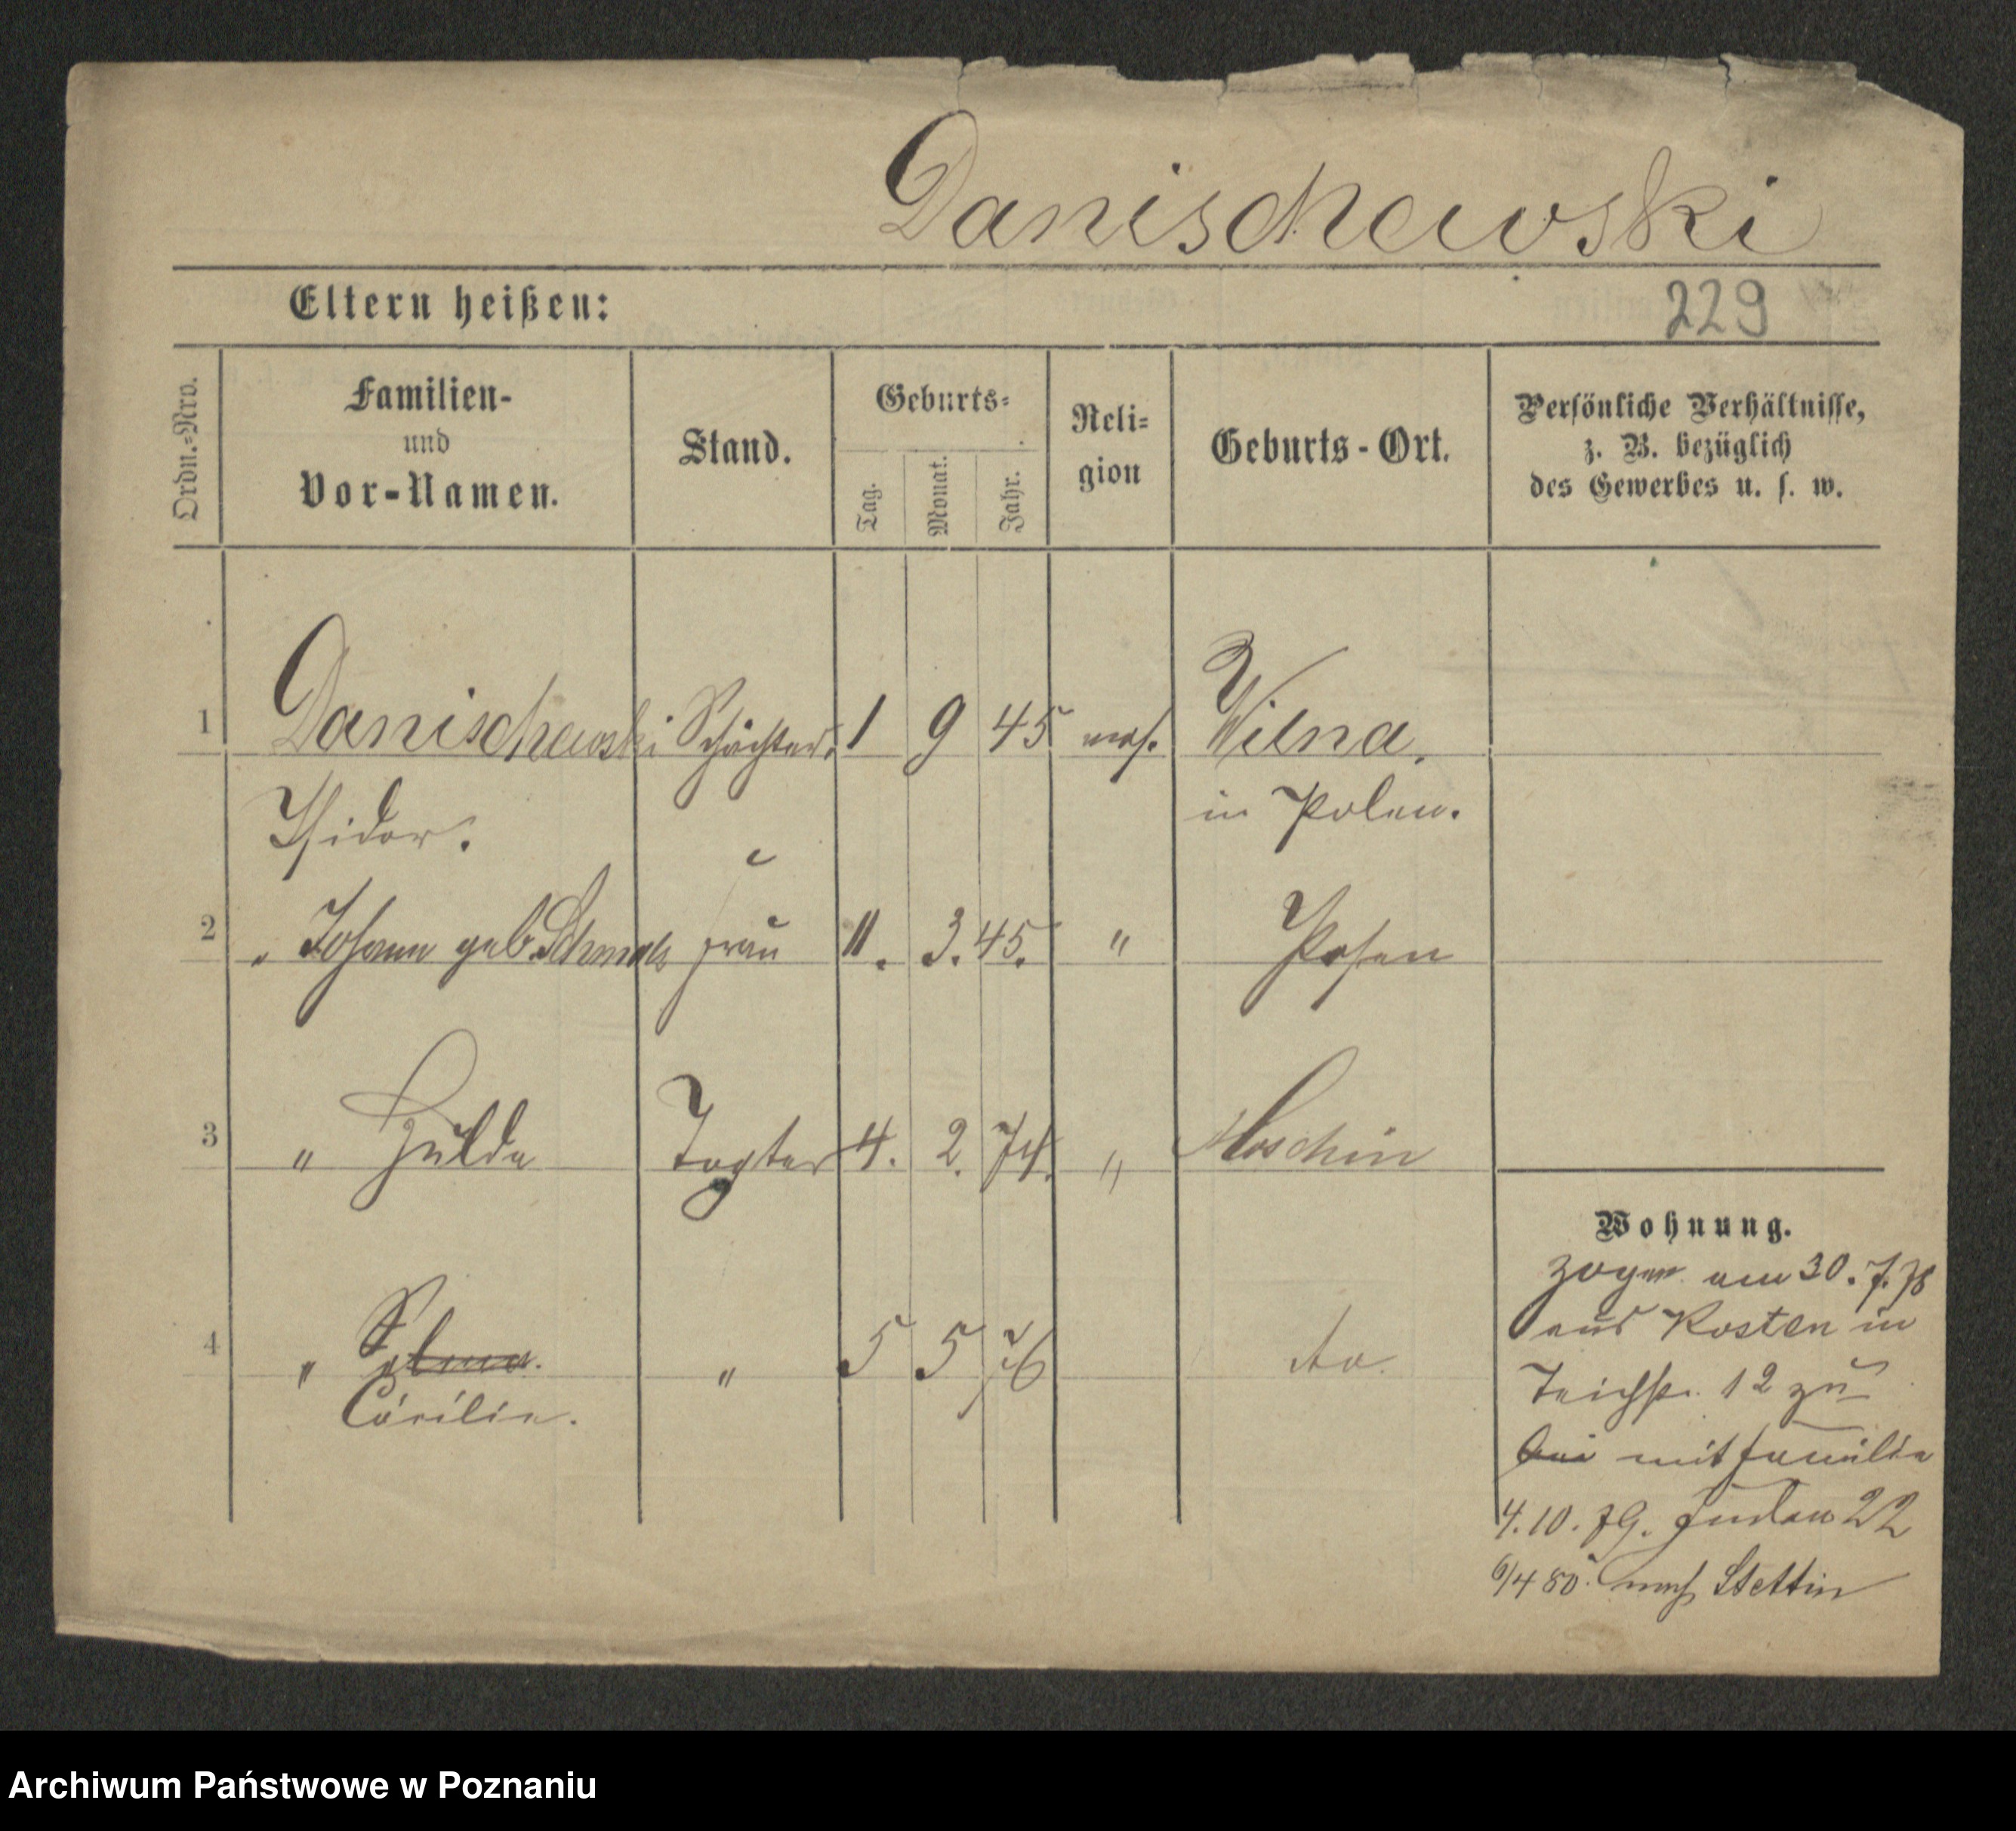 Danischewski
Eltern heißen:
229
Ordn.-Nro.
Familien-
und
Vor-Namen.
Stand.
Geburts-
Tag.
Monat.
Jahr.
Reli-
gion
Geburts-Ort.
Persönliche Verhältnisse,
z. B. bezüglich
des Gewerbes u. s. w.
1 Danischewski Schächter. 1 9 45 mos. Wilna.
Isidor. in Polen.
2 " Johann geb. Frau 11. 3. 45. " Posen
3 " Hulda Togter 4. 2. 74. " Moschin
4 " Selma. " 5 5 76 do.
Cäcilie.
Wohnung.
zogen am 30.7.78
aus Kosten in
Teichstr. 12 zu
bei mit Familie
4.10.79. Juden 22
6/4 80. nach Stettin
Archiwum Państwowe w Poznaniu